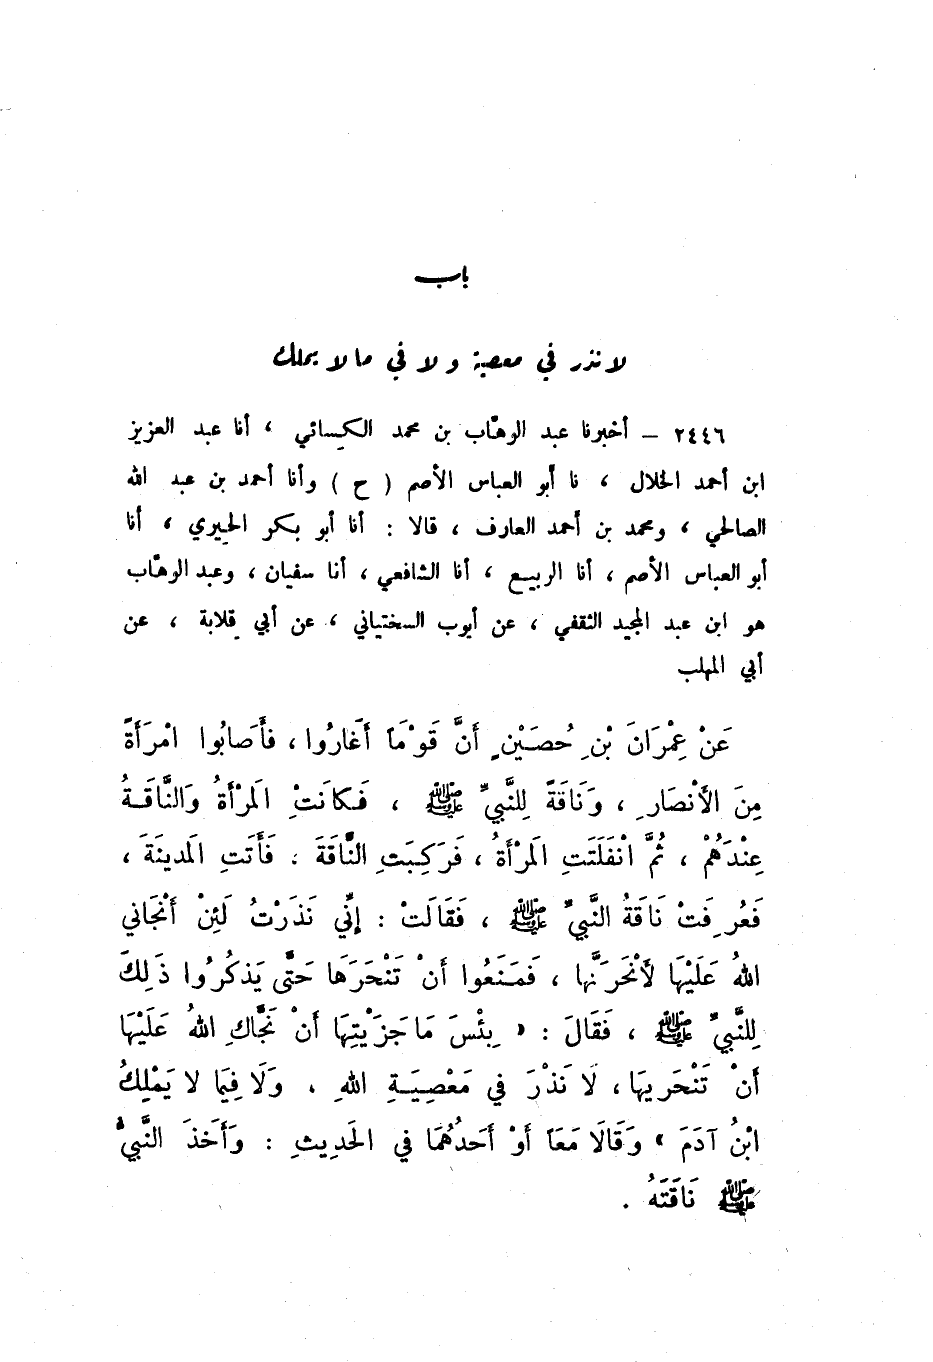 باب
لا نذر في معصية ولا في ما لا يملك
٢٤٤٦ – أخبرنا عبد الوهّاب بن محمد الكسائي ، أنا عبد العزيز
ابن أحمد الخلال ، نا أبو العباس الأصم ( ح ) وأنا أحمد بن عبد الله
الصالحي ، ومحمد بن أحمد العارف ، قالا : أنا أبو بكر الحيري ، أنا
أبو العباس الأصم ، أنا الربيع ، أنا الشافعي ، أنا سفيان ، وعبد الوهّاب
هو ابن عبد المجيد الثقفي ، عن أيوب السختياني ، عن أبي قلابة ، عن
أبي المهلب
عَنْ عِمْرَانَ بْنِ حُصَيْنٍ أَنَّ قَوْمَاً أَغَارُوا ، فأَصابُوا امْرَأَةً
مِنَ الأَنْصَارِ ، وَنَاقَةً لِلنَّبيِّ ﷺ ، فَكانَتْ المَرْأَةُ وَالنَّاقَةُ
عِنْدَهُمْ ، ثُمَّ انْفَلَتَتِ المَرْأَةُ ، فَرَكِبَتِ النَّاقَةَ . فَأَتَتِ المَدينَةَ ،
فَعُرِفَتْ نَاقَةُ النَّبيِّ ﷺ ، فَقَالَتْ : إِنِّي نَذَرْتُ لَئِنْ أَنْجَاني
اللهُ عَلَيْهَا لأَنْحَرَنَّها ، فَمَنَعُوا أَنْ تَنْحَرَهَا حَتَّى يَذكُرُوا ذَلِكَ
لِلنَّبيِّ ﷺ ، فَقَالَ : « بِئْسَ مَا جَزَيْتِهَا أَنْ نَجَّاكِ اللهُ عَلَيْهَا
أَنْ تَنْحَرِيهَا ، لَا نَذْرَ فِي مَعْصِيَةِ اللهِ ، وَلَا فِيَا لا يَمْلِكُ
ابْنُ آدَمَ » وَقَالَا مَعَاً أَوْ أَحَدُهُمَا في الحَدِيثِ : وَأَخَذَ النَّبيُّ
ﷺ نَاقَتَهُ .